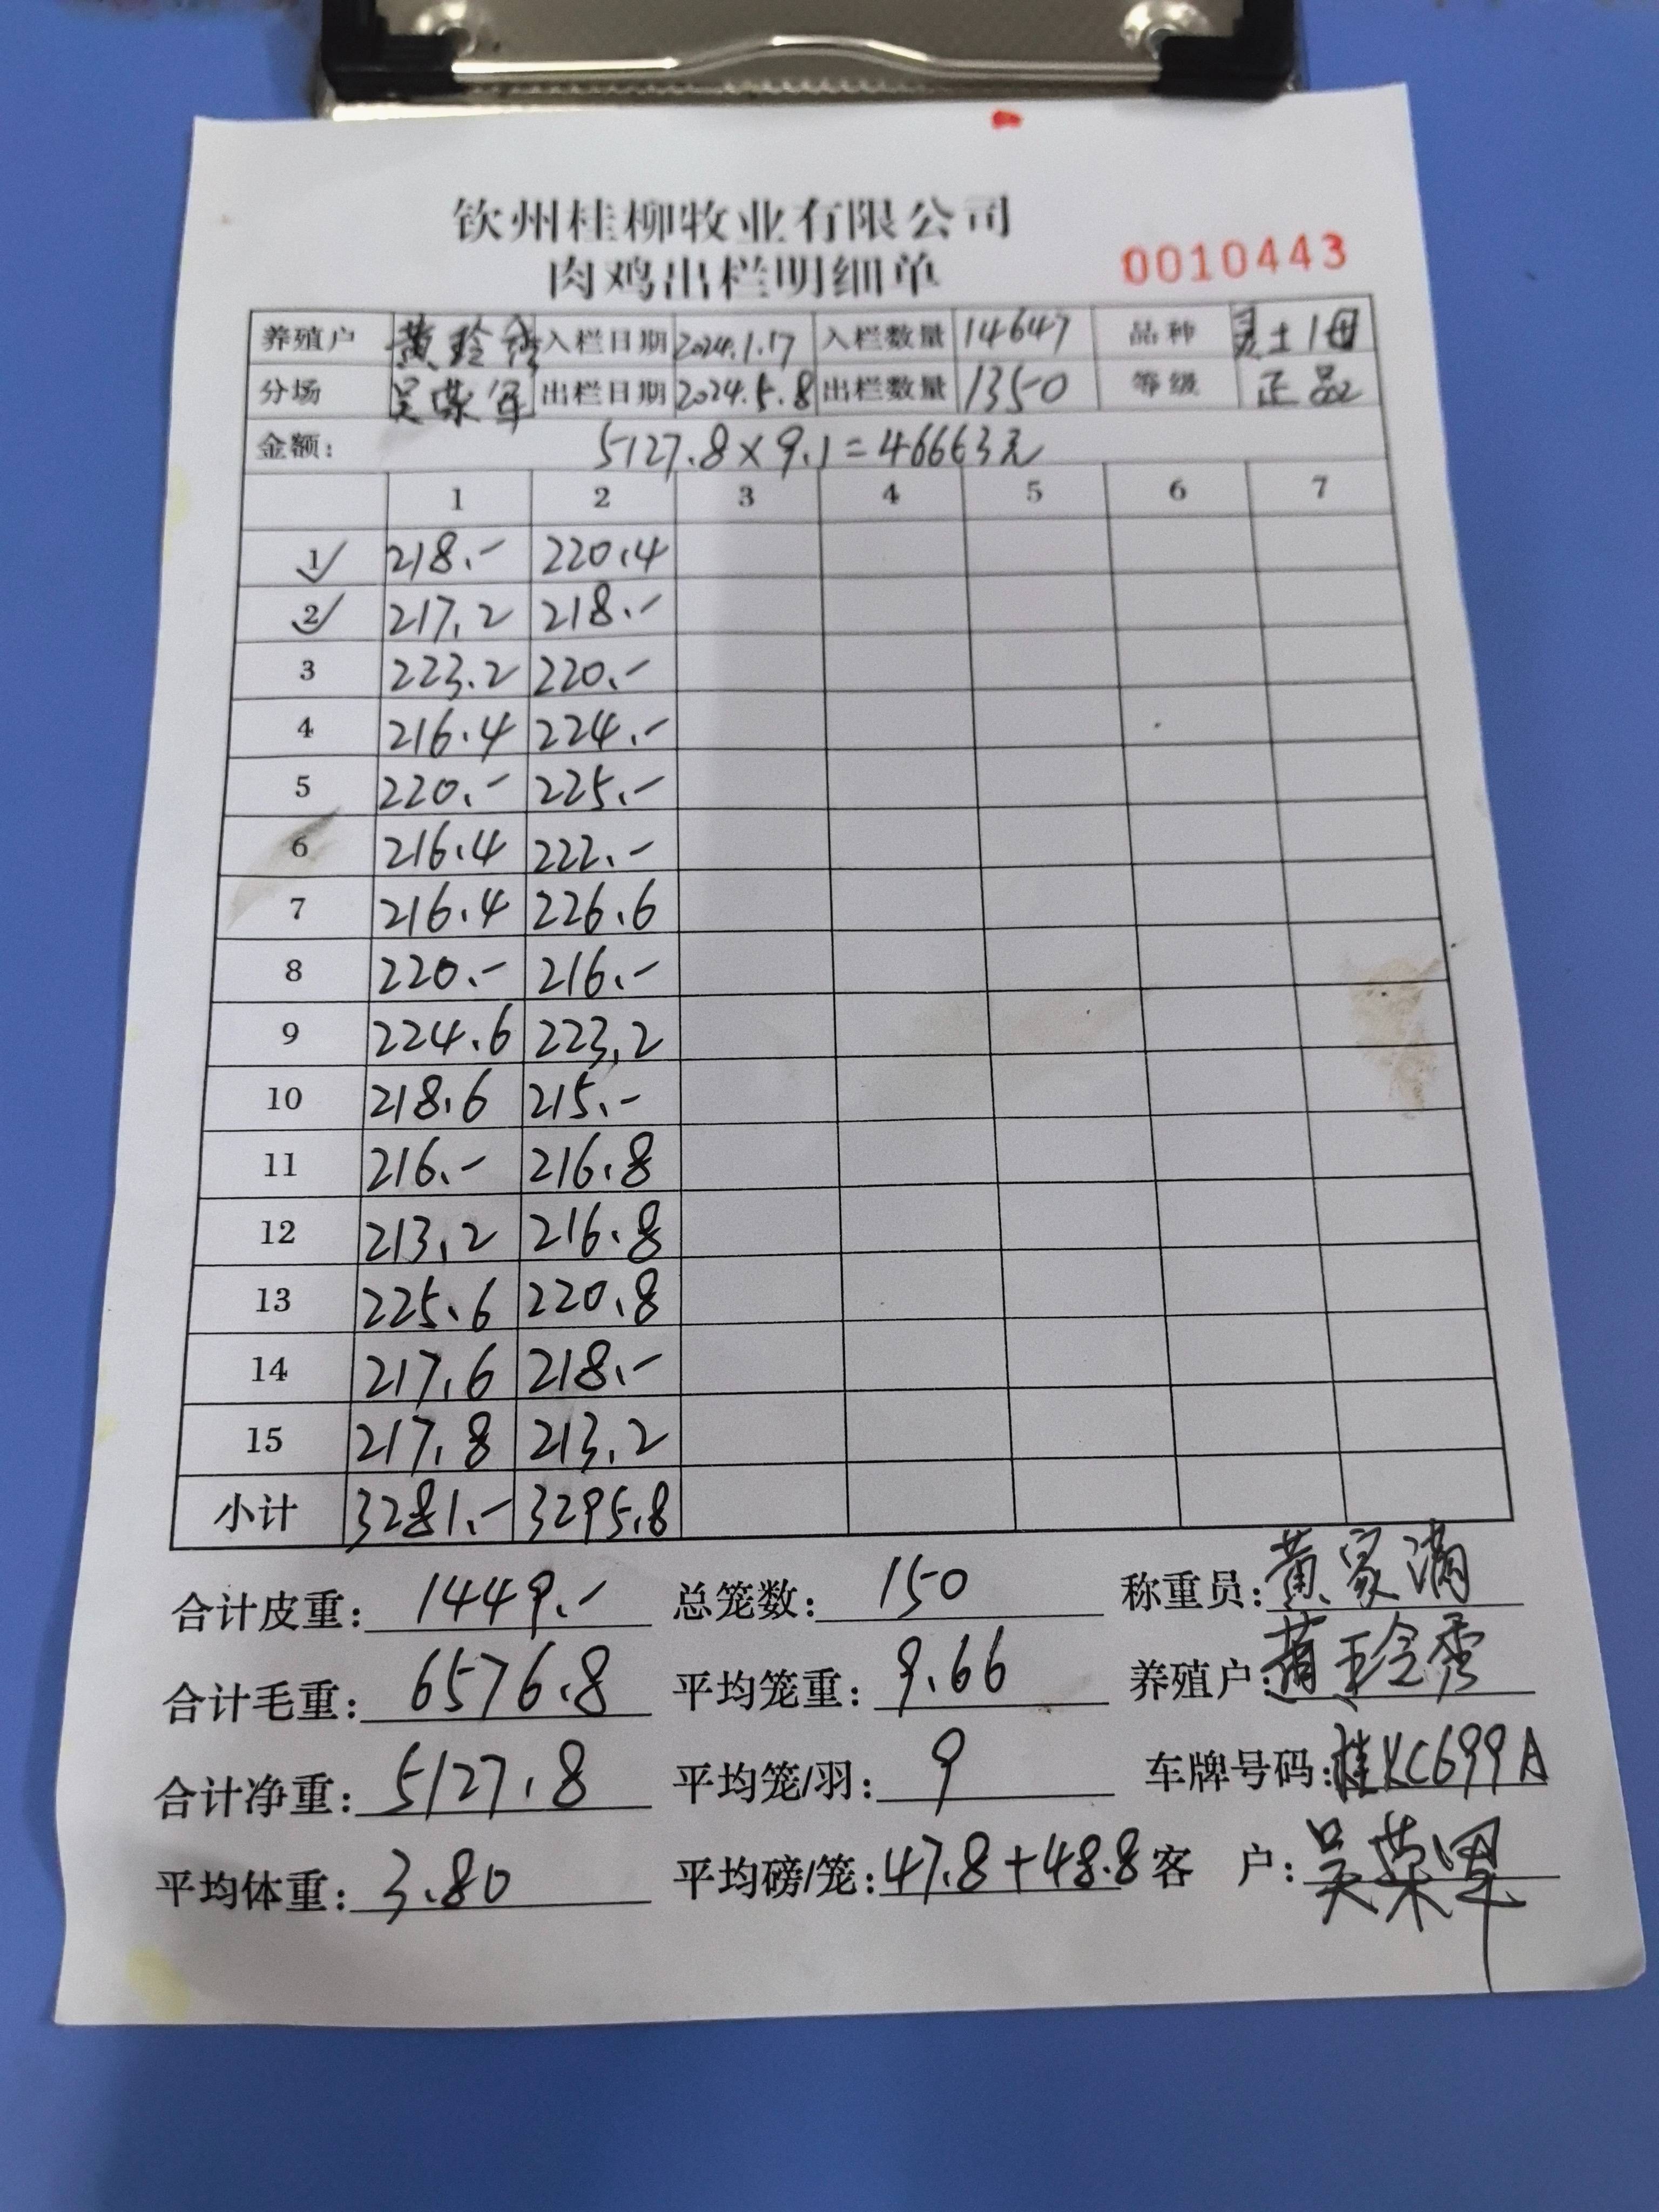 钦州桂柳牧业有限公司
肉鸡出栏明细单
0010443
养殖户 黄玲秀 入栏日期 2024.1.17 入栏数量 14647 品种 灵土1母
分场 吴荣军 出栏日期 2024.5.8 出栏数量 1350 等级 正品
金额: 5127.8×9.1=46663元
1 2 3 4 5 6 7
1 218.- 220.4
2 217.2 218.-
3 223.2 220.-
4 216.4 224.-
5 220.- 225.-
6 216.4 222.-
7 216.4 226.6
8 220.- 216.-
9 224.6 223.2
10 218.6 215.-
11 216.- 216.8
12 213.2 216.8
13 225.6 220.8
14 217.6 218.-
15 217.8 213.2
小计 3281.- 3295.8
合计皮重: 1449.- 总笼数: 150 称重员: 黄家满
合计毛重: 6576.8 平均笼重: 9.66 养殖户: 黄玲秀
合计净重: 5127.8 平均笼/羽: 9 车牌号码: 桂KC699A
平均体重: 3.80 平均磅/笼: 47.8+48.8 客 户: 吴荣军